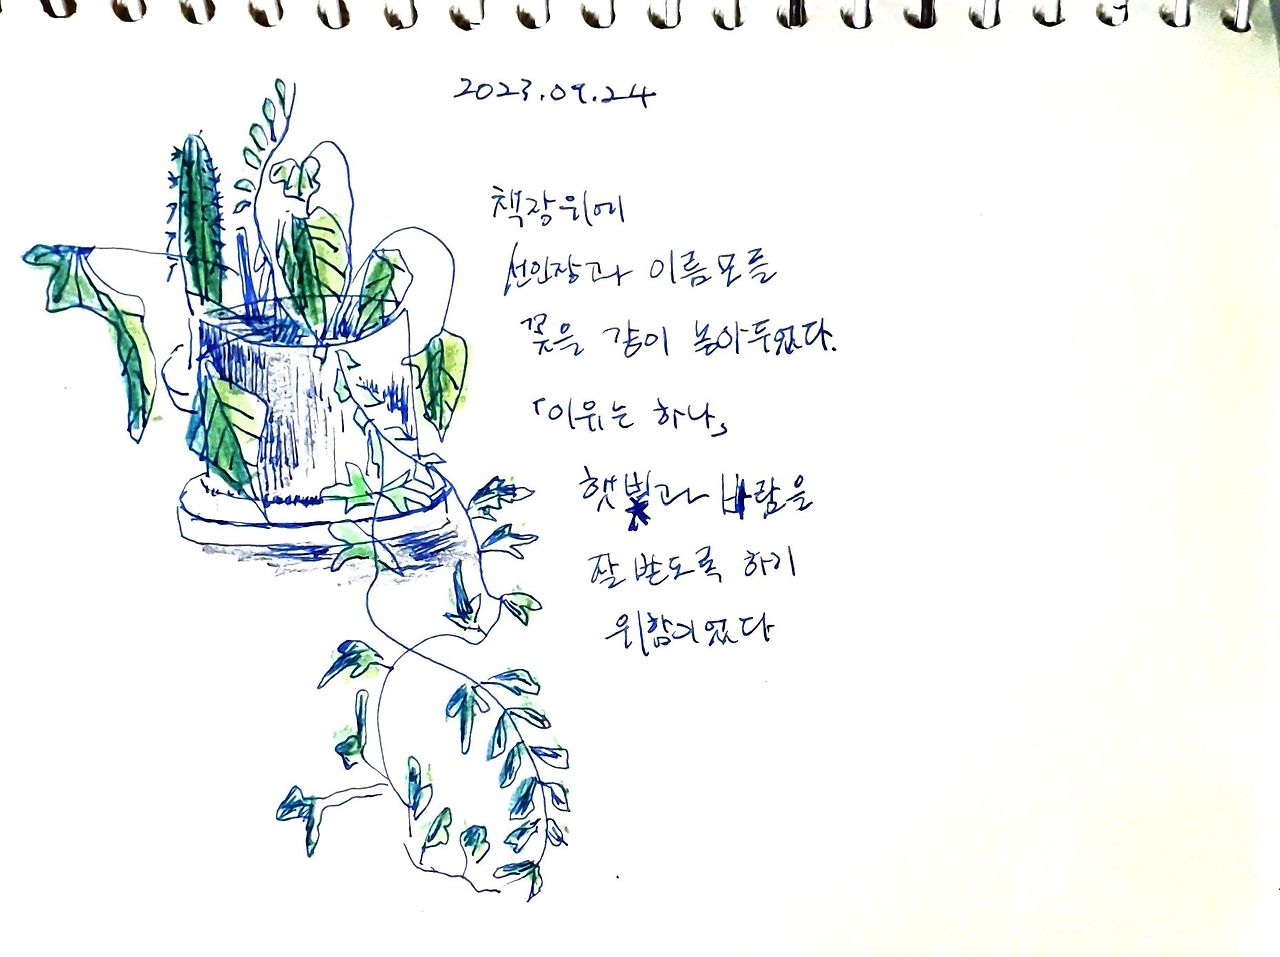 2023.09.24
책장위에
선인장과 이름모를
꽃을 같이 놓아두었다.
「이유는 하나」
햇빛과 바람을
잘 받도록 하기
위함이었다